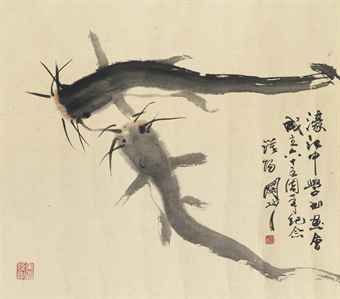 濠江中學書畫會
成立六十五周年紀念
漠陽關山月